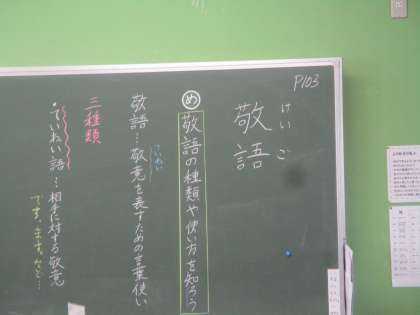 P103
けいご
敬語
め 敬語の種類や使い方を知ろう
敬語…敬意を表すための言葉使い
けいい
三種類
・ていねい語…相手に対する敬意
です、ます、など…